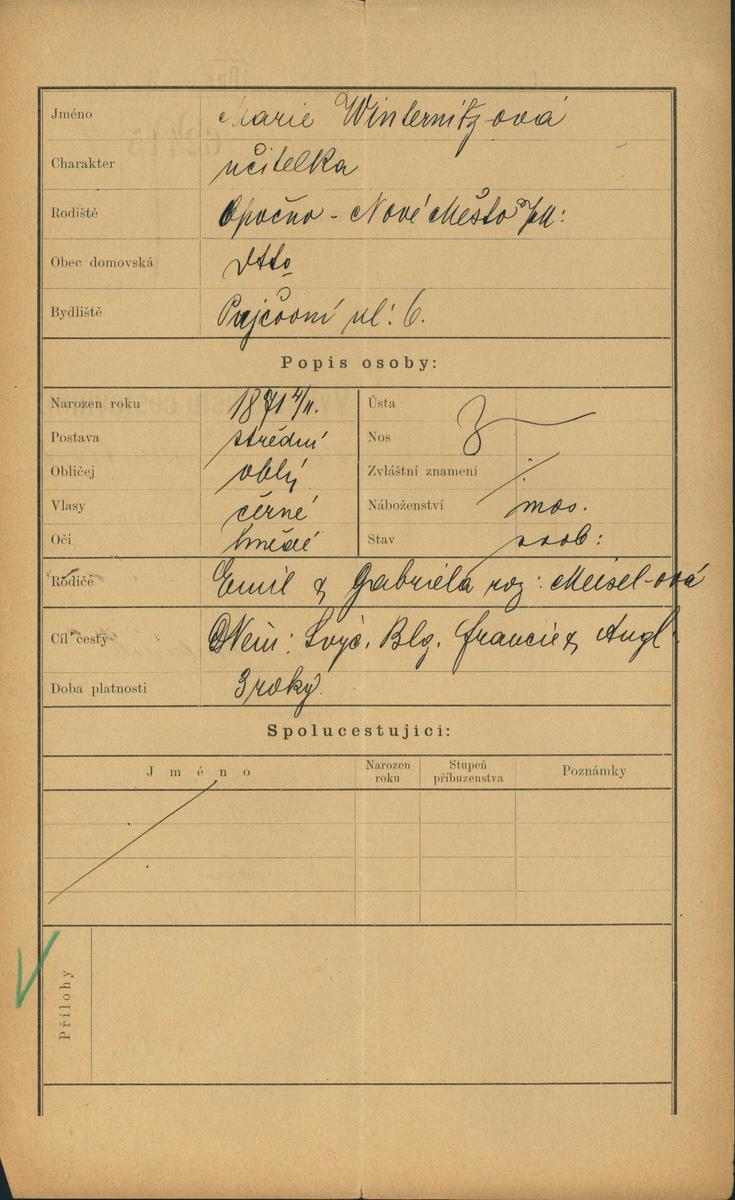 Jméno Marie Winternitzová
Charakter učitelka
Rodiště Opočno - Nové Město
Obec domovská dtto
Bydliště Půjčovní ul: 6.
Popis osoby:
Narozen roku 1871 4/II.
Ústa
Postava střední
Nos
Obličej oblý
Zvláštní znamení ./.
Vlasy černé
Náboženství mos.
Oči hnědé
Stav svob:
Rodiče Emil & Gabriela roz: Meisel-ová
Cíl cesty Něm: Švýc. Blg. Francie & Angl.
Doba platnosti 3 roky.
Spolucestující:
Jméno Narozen roku Stupeň příbuzenstva Poznámky
Přílohy